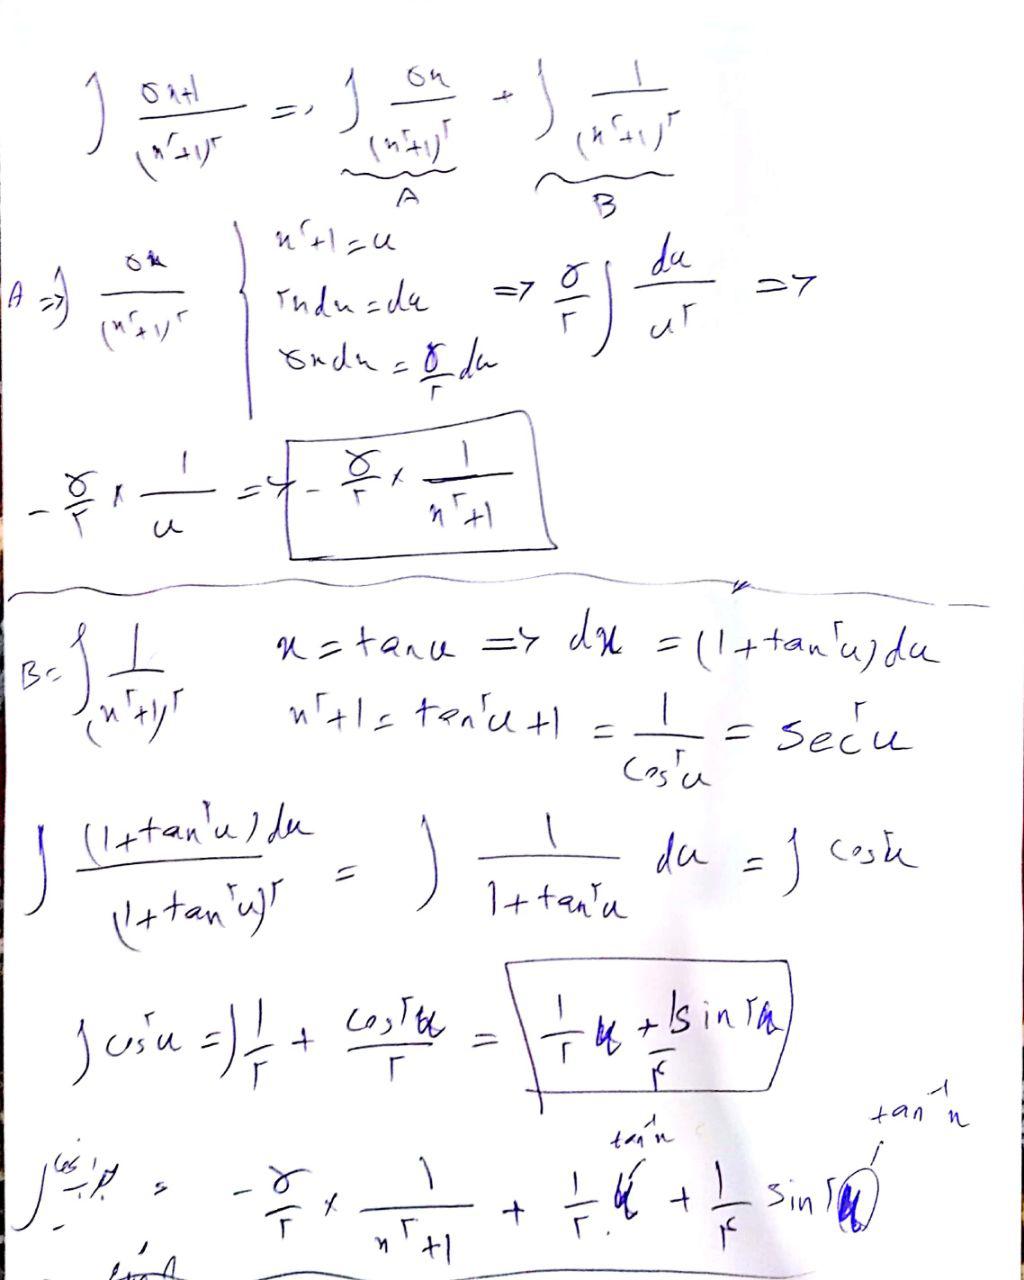 ∫ (۵x+1)/(x^۲+1)^۲ => ∫ ۵x/(x^۲+1)^۲ + ∫ 1/(x^۲+1)^۲
A B
A => ∫ ۵x/(x^۲+1)^۲ { x^۲+1 = u => ۵/۲ ∫ du/u^۲ =>
۲xdx = du
۵xdx = ۵/۲ du
- ۵/۲ × 1/u => - ۵/۲ × 1/(x^۲+1)
B = ∫ 1/(x^۲+1)^۲ x = tan u => dx = (1+tan^۲u) du
x^۲+1 = tan^۲u+1 = 1/cos^۲u = sec^۲u
∫ (1+tan^۲u) du/(1+tan^۲u)^۲ = ∫ 1/(1+tan^۲u) du = ∫ cos^۲u
∫ cos^۲u = ∫ 1/۲ + cos۲u/۲ = 1/۲ u + 1/۴ sin۲u
tan^-1 x tan^-1 x
= - ۵/۲ × 1/(x^۲+1) + 1/۲ u + 1/۴ sin۲u